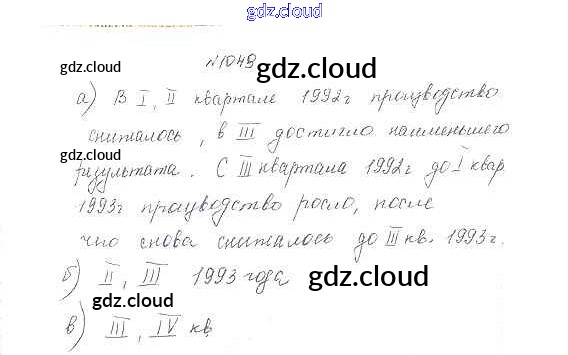 gdz.cloud
№1049
gdz.cloud
gdz.cloud
а) В I, II квартале 1992г производство
снижалось, в III достигло наименьшего
gdz.cloud
результата. С III квартала 1992г до I квар
1993г производство росло, после
чего снова снижалось до III кв. 1993г.
б) II, III 1993 года
gdz.cloud
gdz.cloud
в) III, IV кв
gdz.cloud